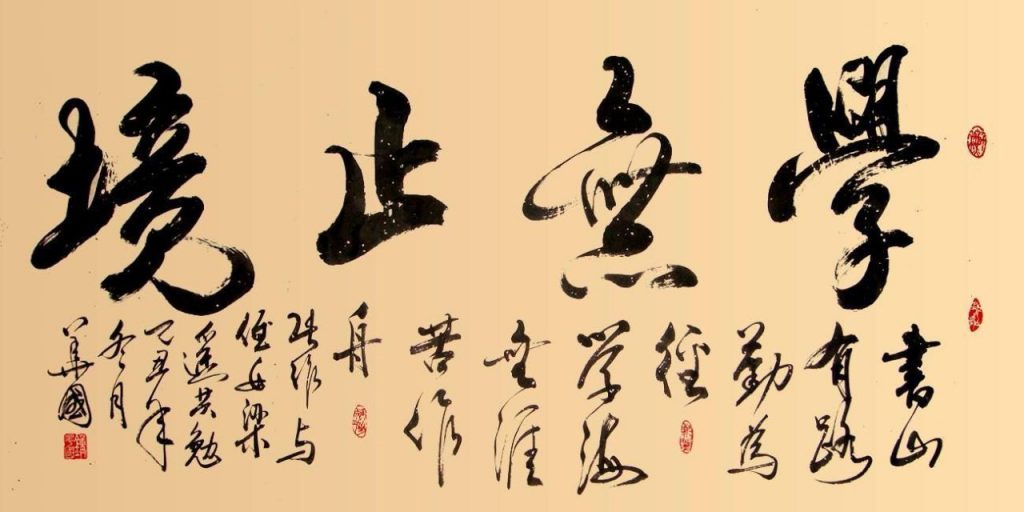 學無止境
書山
有路
勤為
徑
学海
無涯
苦作
舟
与
侄女梁
遥共勉
己丑年
冬月
華國